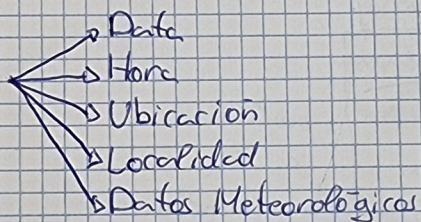 Data
Hora
Ubicación
Localidad
Datos Meteorológicos